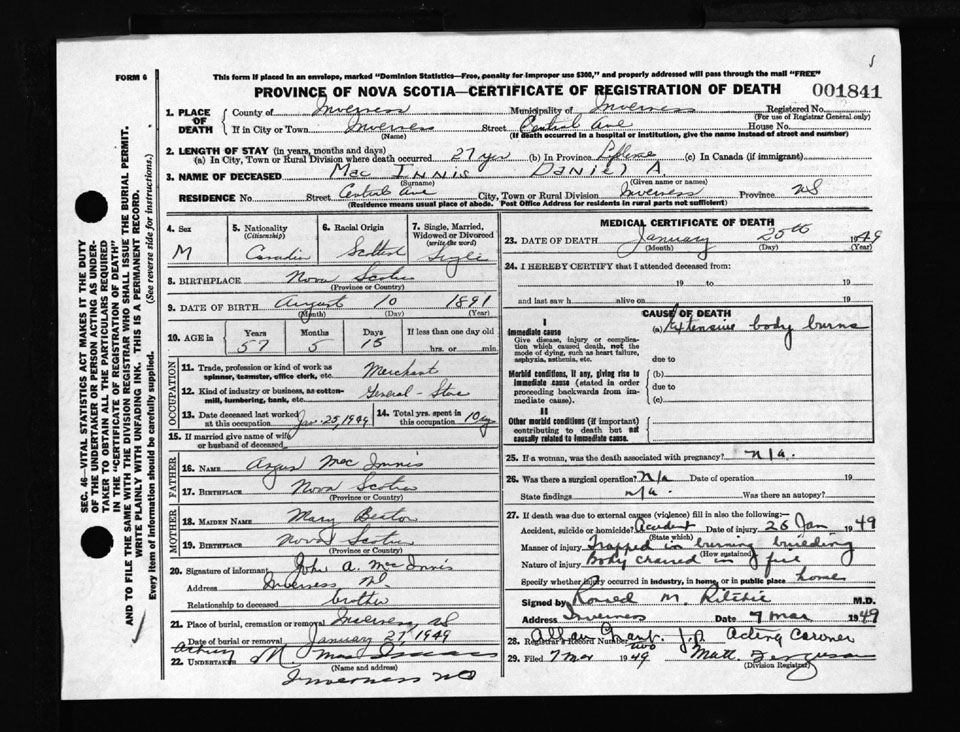 FORM 6
This form if placed in an envelope, marked "Dominion Statistics—Free, penalty for improper use $300," and properly addressed will pass through the mail "FREE"
PROVINCE OF NOVA SCOTIA—CERTIFICATE OF REGISTRATION OF DEATH 001841
1. PLACE OF DEATH
County of Inverness Municipality of Inverness Registered No.
(For use of Registrar General only)
If in City or Town Inverness Street Central Ave House No.
(Name) (If death occurred in a hospital or institution, give the name instead of street and number)
2. LENGTH OF STAY (in years, months and days)
(a) In City, Town or Rural Division where death occurred 27 yrs (b) In Province Lifetime (c) In Canada (if immigrant)
3. NAME OF DECEASED Mac Innis Daniel A
(Surname) (Given name or names)
RESIDENCE No. Street Central Ave City, Town or Rural Division Inverness Province NS
(Residence means usual place of abode. Post Office Address for residents in rural parts not sufficient)
4. Sex M
5. Nationality (Citizenship) Canadian
6. Racial Origin Scotch
7. Single, Married, Widowed or Divorced (write the word) Single
8. BIRTHPLACE Nova Scotia
(Province or Country)
9. DATE OF BIRTH August 10 1891
(Month) (Day) (Year)
10. AGE in Years 57 Months 5 Days 15 If less than one day old hrs. or min.
OCCUPATION
11. Trade, profession or kind of work as spinner, teamster, office clerk, etc. Merchant
12. Kind of industry or business, as cotton-mill, lumbering, bank, etc. General - Store
13. Date deceased last worked at this occupation Jan. 25, 1949
14. Total yrs. spent in this occupation 10 yrs
15. If married give name of wife or husband of deceased
FATHER
16. NAME Angus Mac Innis
17. BIRTHPLACE Nova Scotia
(Province or Country)
MOTHER
18. MAIDEN NAME Mary Beaton
19. BIRTHPLACE Nova Scotia
(Province or Country)
20. Signature of informant John A. Mac Innis
Address Inverness NS
Relationship to deceased brother
21. Place of burial, cremation or removal Inverness, NS
Date of burial or removal January 27 1949
22. UNDERTAKER M. Mac Isaac
(Name and address)
Inverness NS
MEDICAL CERTIFICATE OF DEATH
23. DATE OF DEATH January 25th 1949
(Month) (Day) (Year)
24. I HEREBY CERTIFY that I attended deceased from:
19 to 19
and last saw h alive on 19
CAUSE OF DEATH
I
Immediate cause (a) Extensive body burns
Give disease, injury or complication which caused death, not the mode of dying, such as heart failure, asphyxia, asthenia, etc. due to
Morbid conditions, if any, giving rise to immediate cause (stated in order proceeding backwards from immediate cause). (b)
due to
(c)
II
Other morbid conditions (if important) contributing to death but not causally related to immediate cause.
25. If a woman, was the death associated with pregnancy? n/a.
26. Was there a surgical operation? n/a Date of operation 19
State findings n/a. Was there an autopsy?
27. If death was due to external causes (violence) fill in also the following:—
Accident, suicide or homicide? Accident Date of injury 25 Jan 1949
(State which)
Manner of injury Trapped in burning building
(How sustained)
Nature of injury Body charred in fire
Specify whether injury occurred in industry, in home, or in public place home
Signed by Ronald M. Ritchie M.D.
Address Inverness Date 7 Mar 1949
Allan J.P. Acting Coroner
28. Registrar's Record Number two
29. Filed 7 Mar 1949 Matt. Ferguson
(Division Registrar)
SEC. 46—VITAL STATISTICS ACT MAKES IT THE DUTY
OF THE UNDERTAKER OR PERSON ACTING AS UNDER-
TAKER TO OBTAIN ALL THE PARTICULARS REQUIRED
IN THE "CERTIFICATE OF REGISTRATION OF DEATH"
AND TO FILE THE SAME WITH THE DIVISION REGISTRAR WHO SHALL ISSUE THE BURIAL PERMIT.
WRITE PLAINLY WITH UNFADING INK. THIS IS A PERMANENT RECORD.
Every item of information should be carefully supplied. (See reverse side for instructions.)